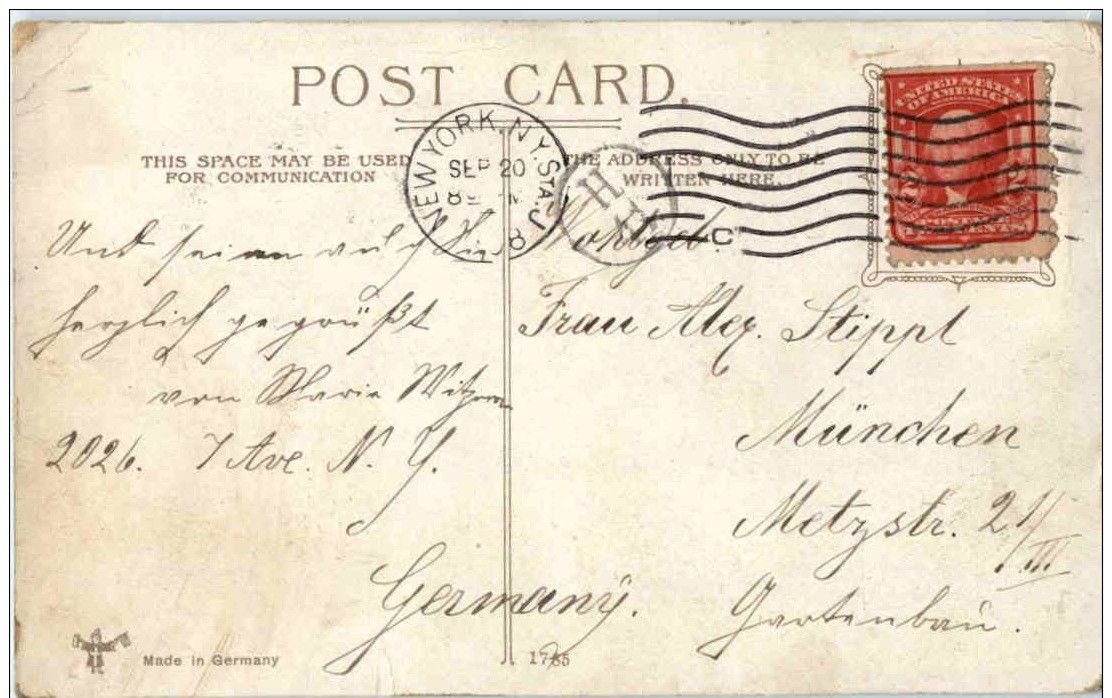 POST CARD.
THIS SPACE MAY BE USED
FOR COMMUNICATION
THE ADDRESS ONLY TO BE
WRITTEN HERE.
NEW YORK, N.Y. STA. J
SEP 20
8
UNITED STATES
OF AMERICA
H
C
Und seien auch Sie
herzlich gegrüßt
von Marie
2026. 7 Ave. N. Y.
Wohlgeb.
Frau Alex. Stippl
München
Metzstr. 21/
III
Gartenbau.
Germany.
Made in Germany
1785